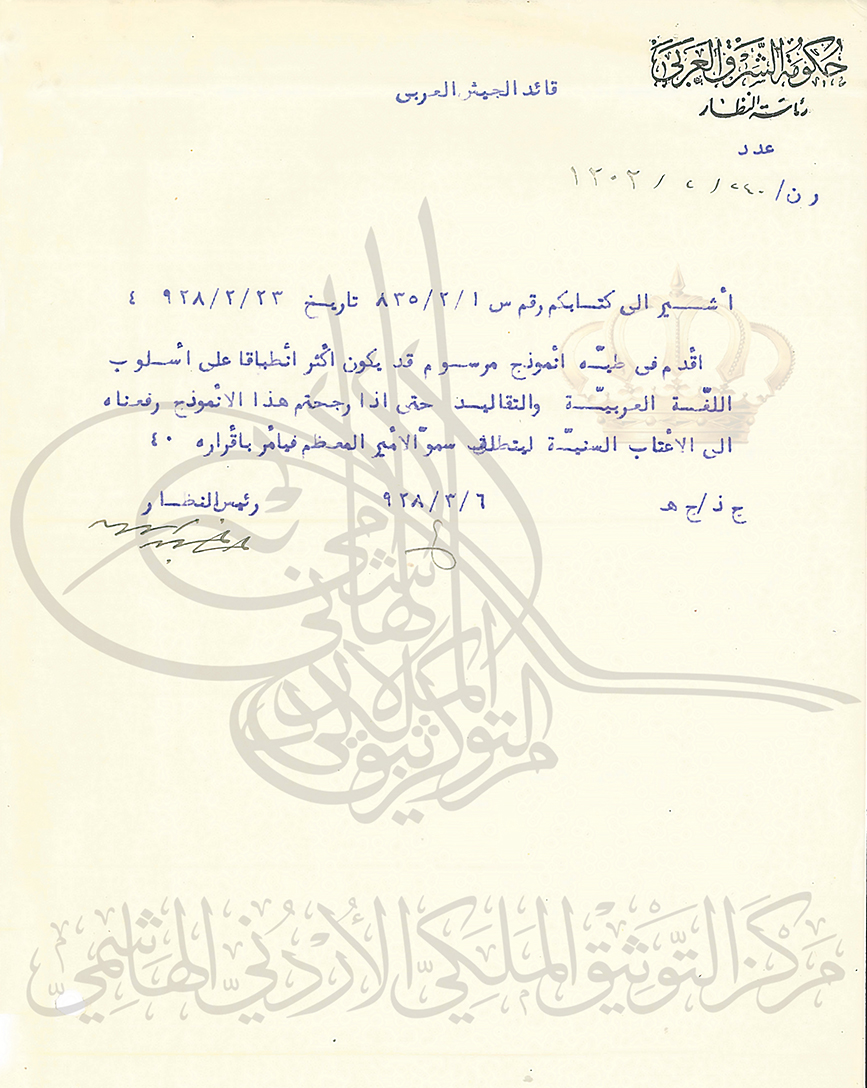 حكومة الشرق العربي
رئاسة النظار
عدد
قائد الجيش العربى
ر ن/ ٢٤٠ / ٢ / ١٣٠٢
أشير الى كتابكم رقم س ٨٣٥/٢/١ تاريخ ٩٢٨/٢/٢٣ ٤
اقٔدم فى طيّه انٔموذج مرسوم قد يكون اكٔثر انٔطباقا على اسٔلوب
اللغّة العربيّة والتقاليد حتى اذا رجحتم هذا الانٔموذج رفعناه
الى الاعٔتاب السنيّة ليتطلف سموّ الامٔير المعظم فيامٔر باقٔراره ٤٠
ج ذ/ج هـ ٩٢٨/٣/٦ رئيس النظار
الهاشمي
الأردني
الملكي
التوثيق
مركز
مركز التوثيق الملكي الأردني الهاشمي